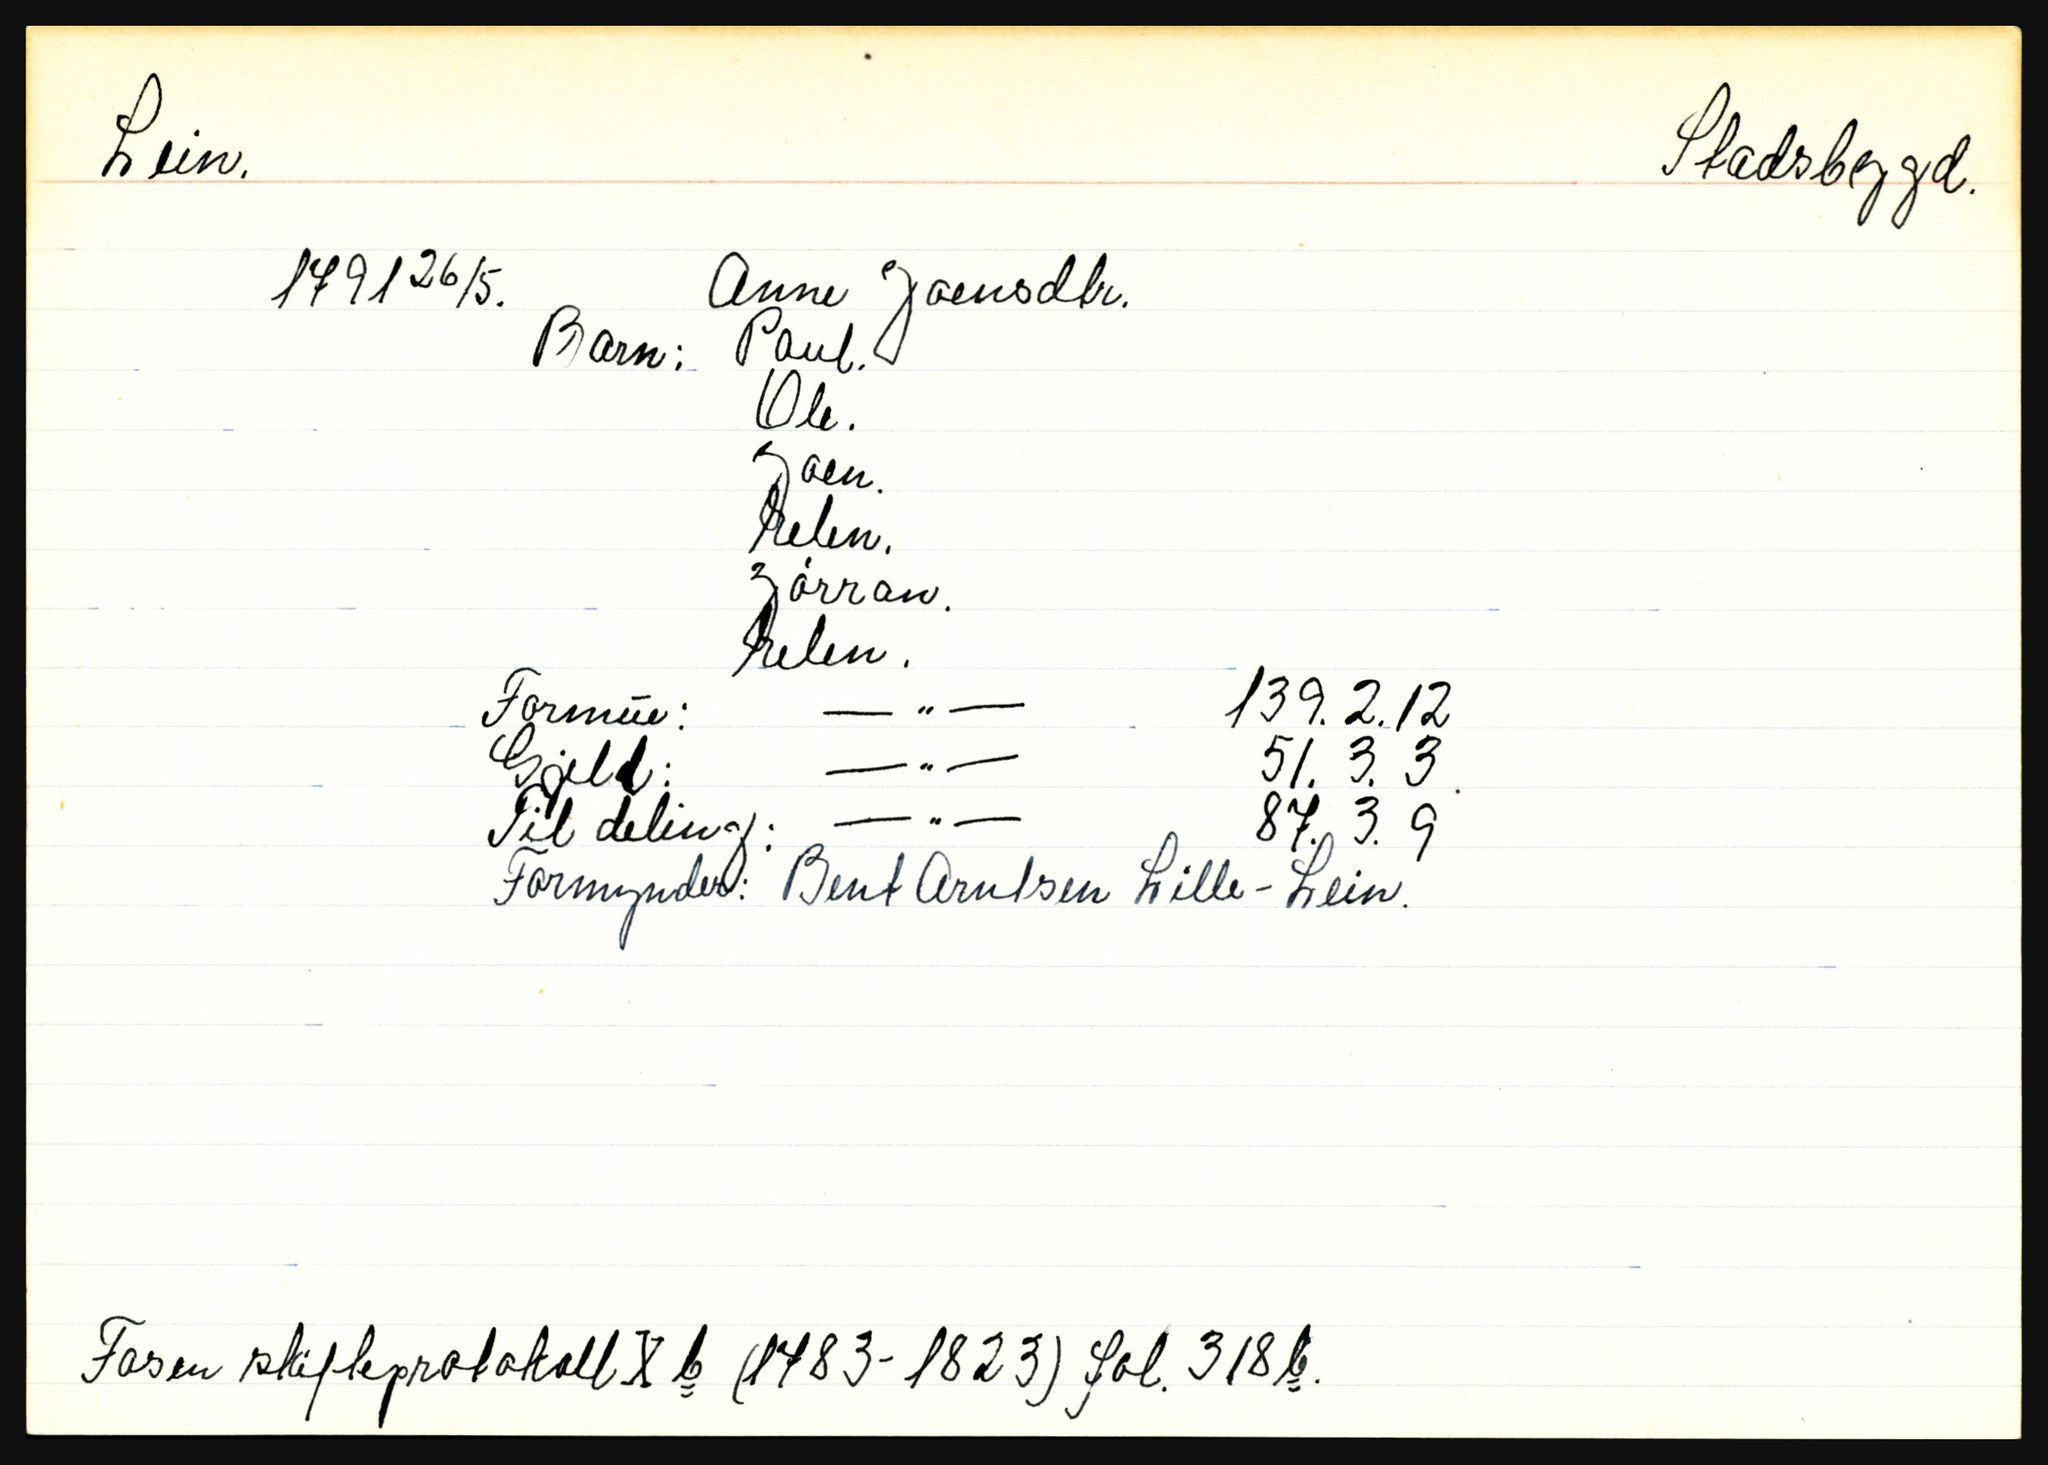 Lein. Stadsbygd.
1791 26/5. Anne Joensdtr.
Barn: Paul.
Ole.
Joen.
Helen.
Jörran.
Helen.
Formūe: — " — 139. 2. 12
Gjeld: — " — 51. 3. 3
Til deling: — " — 87. 3. 9
Formynder: Bent Arntsen Lille-Lein.
Fosen skifteprotokoll X b (1783-1823) fol. 318 b.